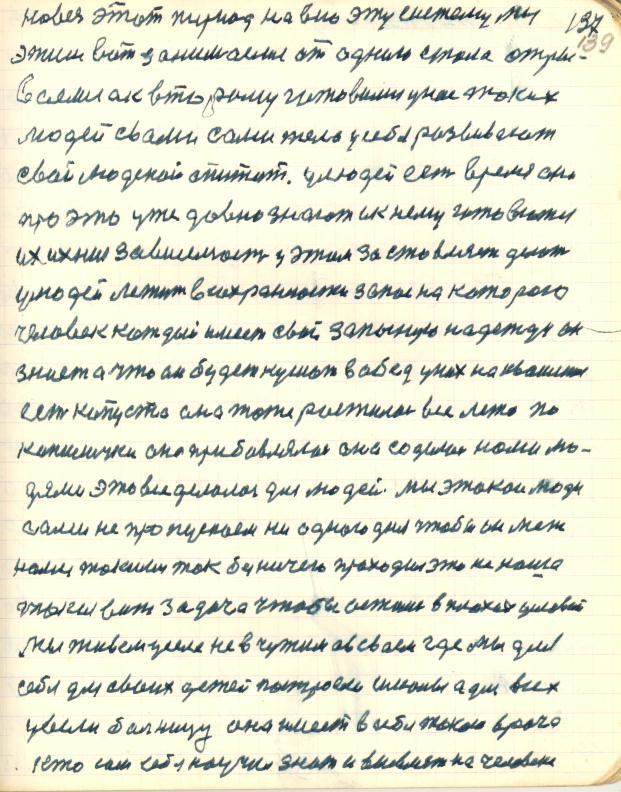 137
139
новея этот период на всю эту систему мы
этим вот занимаемся от одного стола
ак второму готовим у нас таких
людей свами сами тело у себя развивают
свой людской опитот. у людей сеть время они
про это уже давно знают и к нему готовятся
их ихния зависемость у этим заставляет делат
у людей лежит в сохранности запас на которого
человек каждый имеет свой запасную надежду он
знает а что он будет кушат в обед у них наквашена
сеть капуста она тоже растилас все лето по
капилички она прибавлялас она содилас нами лю-
дями это все делалос для людей. мы этокои люди
сами не пропускаем ни одного дня чтобы он меж
нами такими так бы ничего проходил это не наша
такая вот задача чтобы лежать в плохих условей
мы живем у селе не в чужим а в своем где мы для
себя для своих детей построели школы а для всех
увели болницу она имеет в себе такого врача
кто сам себя научил знат и выевлят на человеке